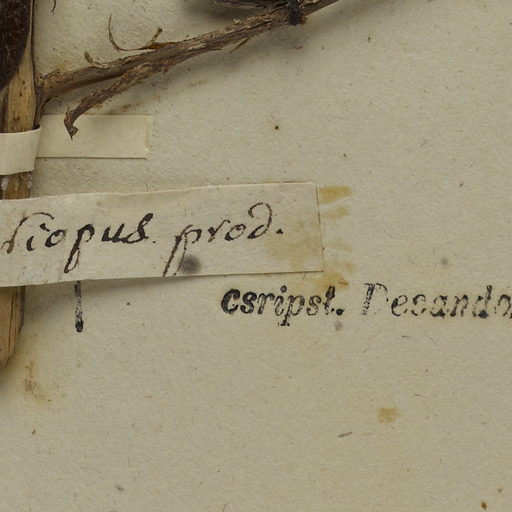 riopus prod.
csripst. Decandol